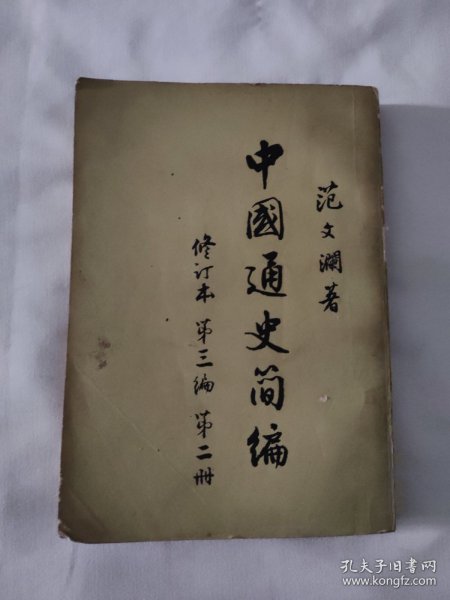 范文瀾著
中國通史简编
修订本 第三编 第二册
孔夫子旧书网
www.kongfz.com